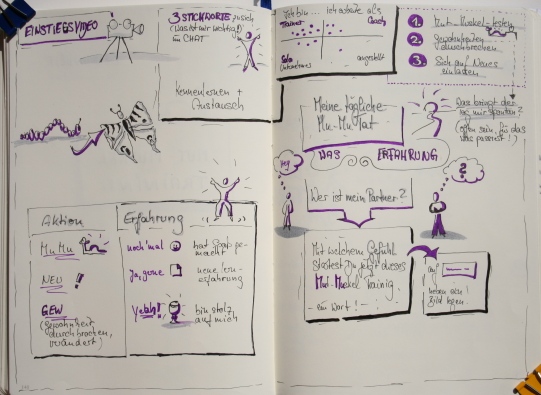 EINSTIEGSVIDEO
3 STICHWORTE zu sich
(was ist mir wichtig)
im CHAT
Kennenlernen +
Austausch
Aktion
Erfahrung
MuMu
noch 'mal
hat Spaß ge-
macht
NEU !
ja, gerne
neue Lern-
erfahrung
GEW
(Gewohnheit
durchbrochen,
verändert)
Yeah!
bin stolz
auf mich
Ich bin ... ich arbeite als
Trainer
Coach
Solo
Unternehmer
angestellt
1. Mut-Muckel-testen
2. Gewohnheiten
durchbrechen
3. Sich auf Neues
einladen
Meine tägliche
Mu-Mu tat
Das bringt der
mir spontan?
(offen sein, für das
was passiert!)
WAS
ERFAHRUNG
Hey
?
Wer ist mein Partner?
Mit welchem Gefühl
startest Du jetzt dieses
Mut-Muckel Training
- ein Wort! -
auf
neben ein
Bild legen.